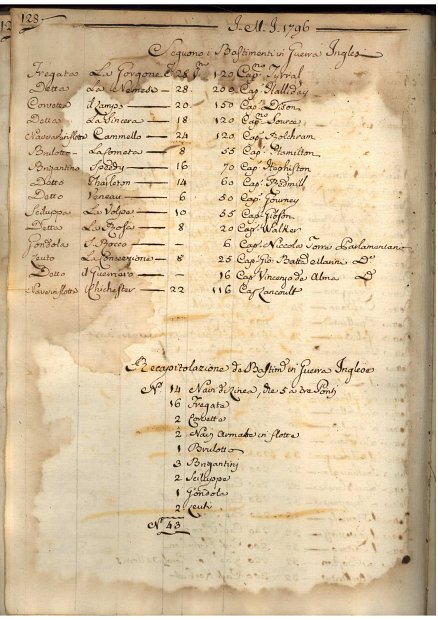 128
J. M. J. 1796
Seguono i Bastimenti in Guerra Inglesi
Fregata La Gorgone C. 28 120 Cap.no Tyrral
Detta La Nemese 28 200 Cap. Halliday
Corvetta il Jamps 20 150 Cap. Dixon
Detta La Sincera 18 120 Cap. Source
Nave Camello 24 120 Cap. Bolchram
Brulotto La Cometa 8 55 Cap. Hamilton
Brigantino Speedy 16 70 Cap.
Detto Charleton 14 60 Cap.
Detto Veneau 6 50 Cap. Journey
Sciluppa La Volpe 10 55 Cap. Gibson
Detta La Rosa 8 20 Cap. Walker
Gondola S. Rocco 6 Cap. Niccola Torre Parlamentario
Leuto La Concezione 8 25 Cap. Gio: Batta Mavin D.o
Detto il Guerriero 16 Cap. Vincenzo de Alma D.o
Nave in flotta Chichester 22 116 Cap. Lancoult
Recapitolazione de Bastim.ti in Guerra Inglese
N.o 14 Navi di Linea, die 5 a tre Ponti
16 Fregate
2 Corvette
2 Navi Armate in flotta
1 Brulotto
3 Brigantini
2 Sciluppe
1 Gondola
2 Leuti
N.o 43